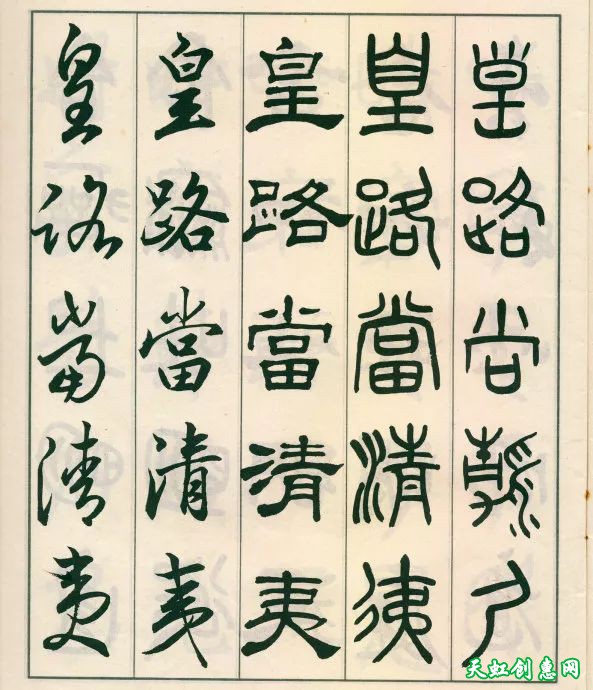 皇路當清夷
皇路當清夷
皇路當清夷
皇路當清夷
皇路當清夷
天虹创惠网